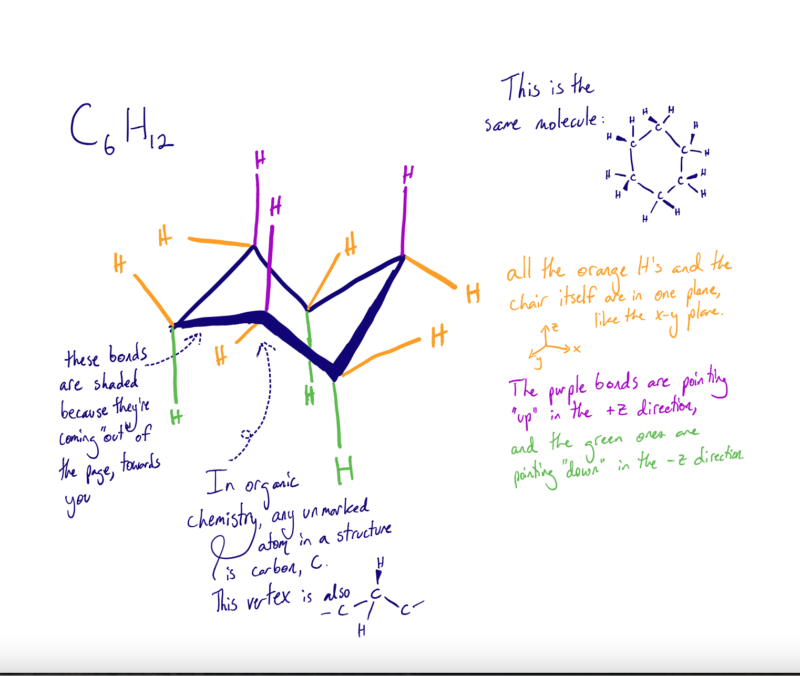 C6H12
This is the
same molecule:
H H
H H H
C C
H C C H
H C C H
H C H
H H
H
H
H
H
H
H
H
H
H
H
H
H
all the orange H's and the
chair itself are in one plane,
like the x-y plane.
z
x
y
The purple bonds are pointing
"up" in the +z direction,
and the green ones are
pointing "down" in the -z direction
these bonds
are shaded
because they're
coming "out" of
the page, towards
you
In organic
chemistry, any unmarked
atom in a structure
is carbon, C.
This vertex is also
H
C C C
H